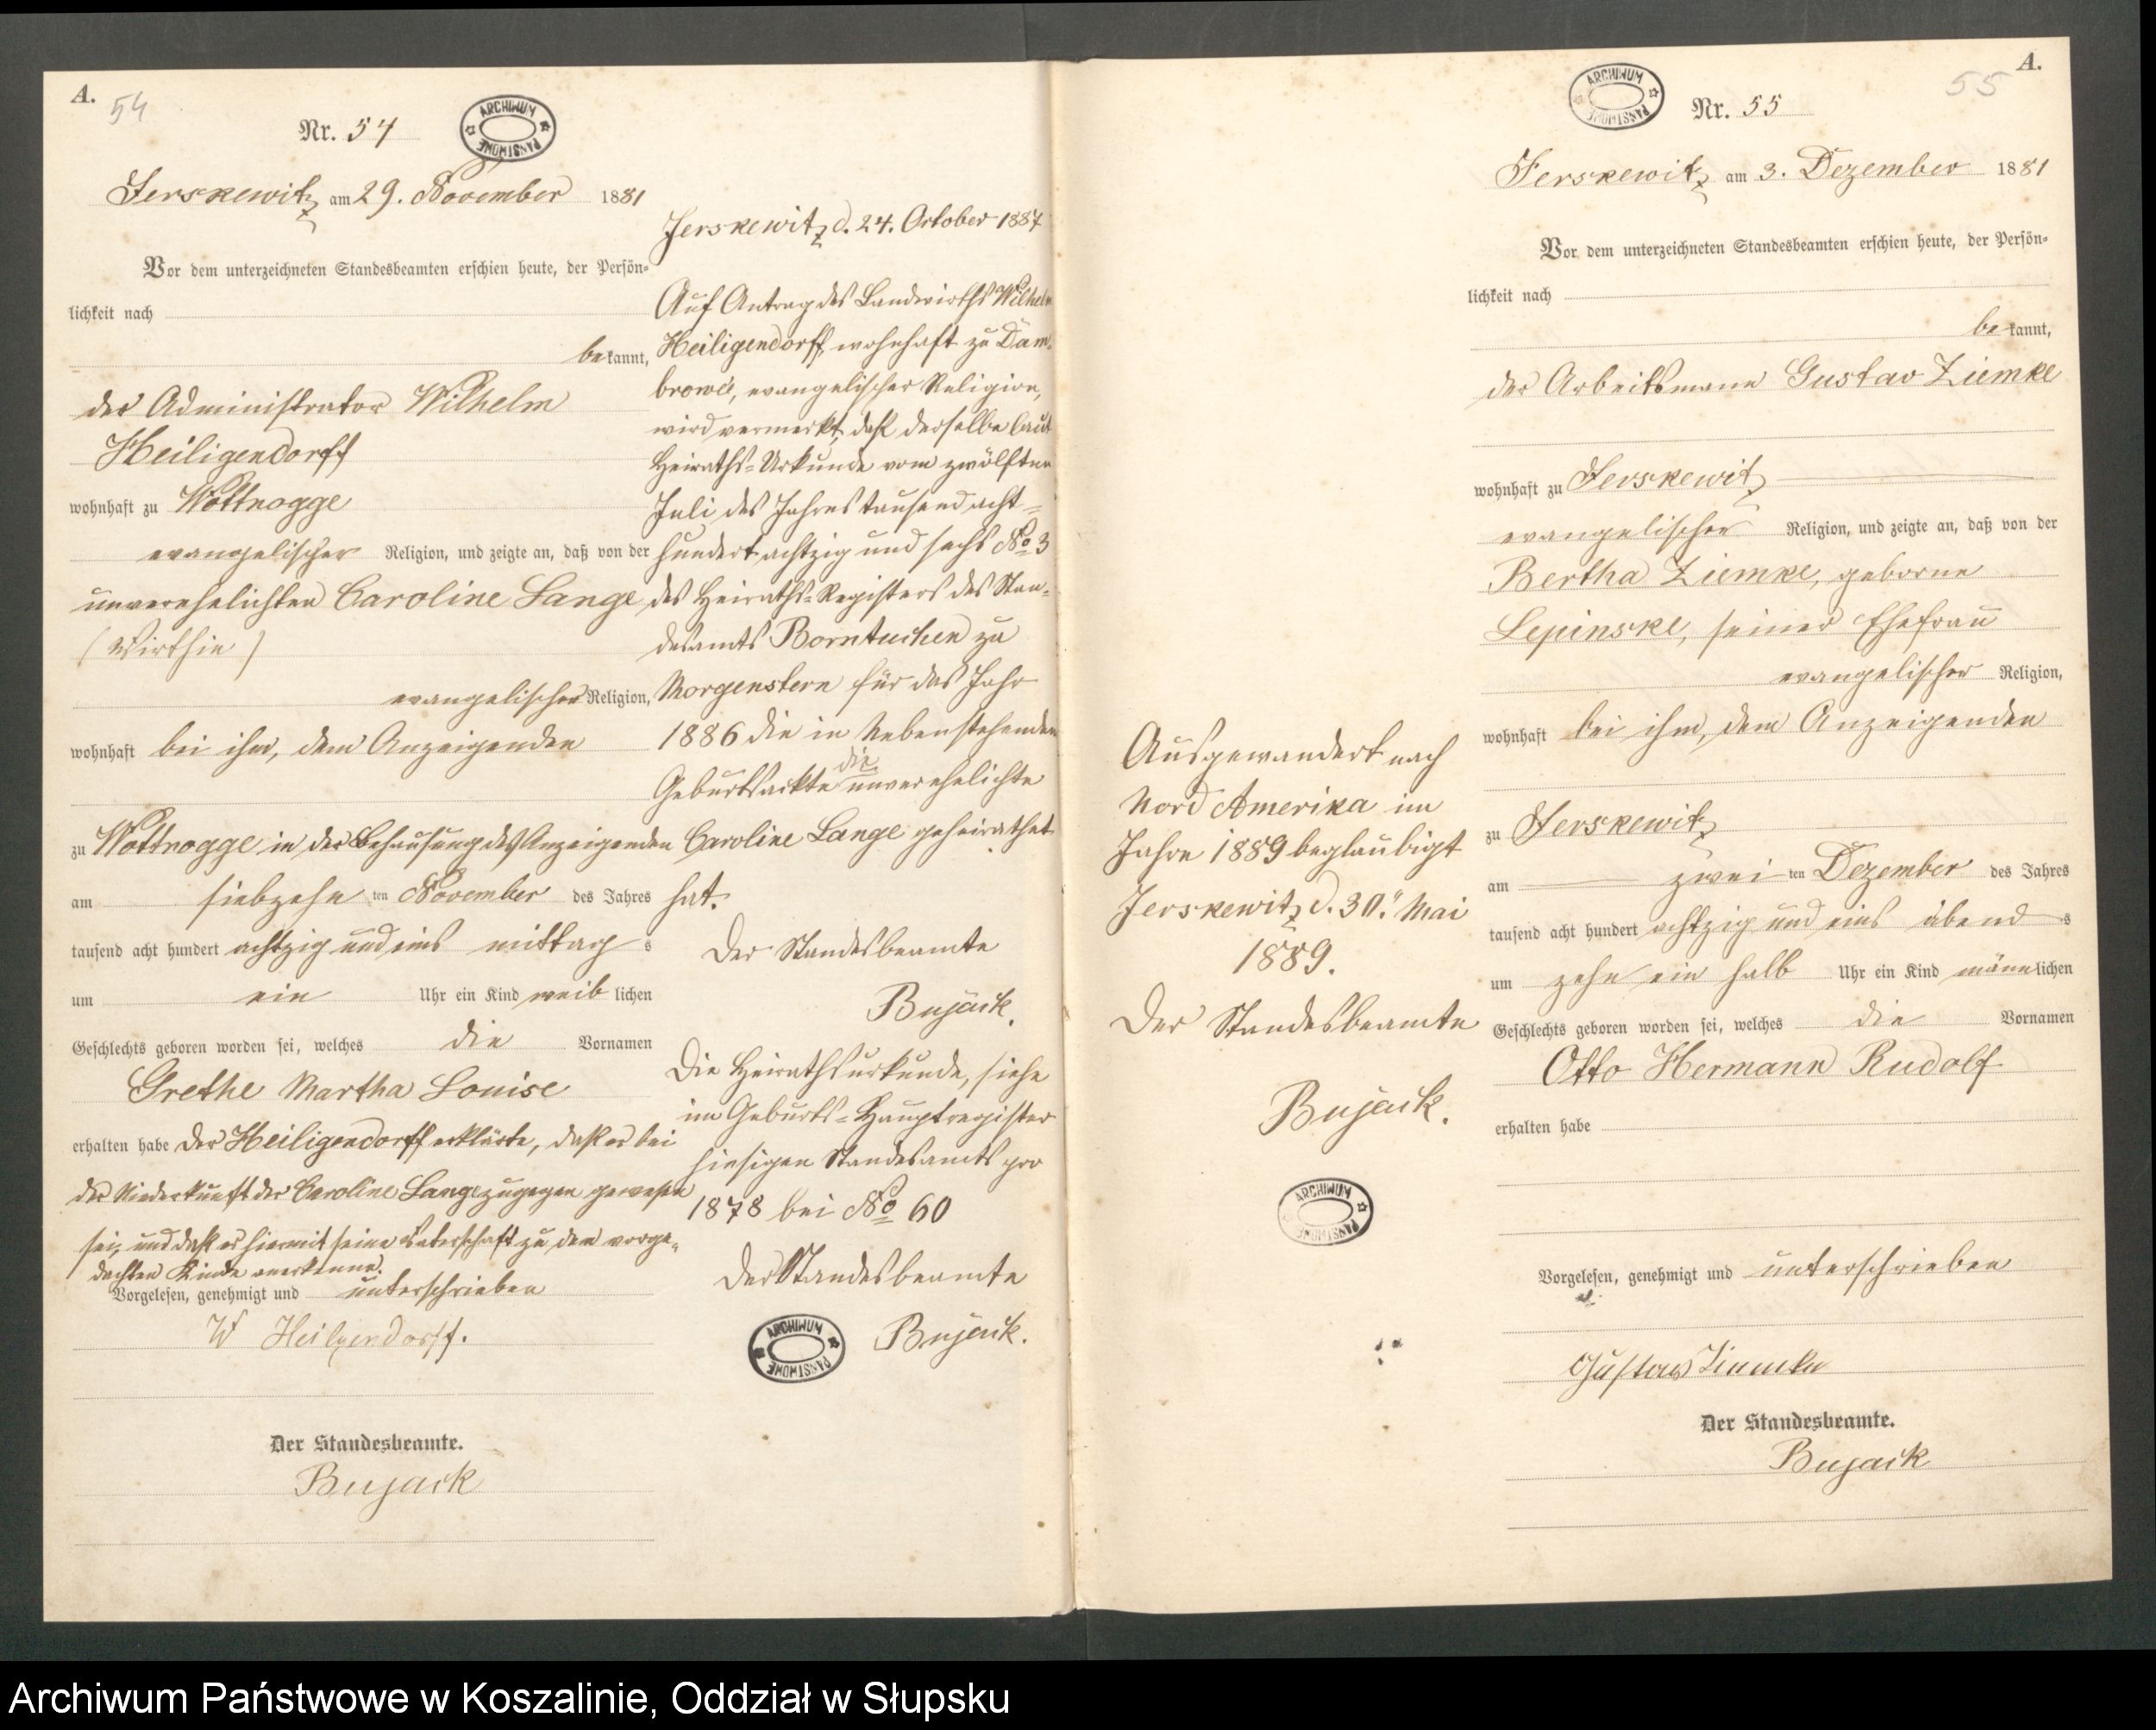 A.
54
Nr. 54
ARCHIWUM PAŃSTWOWE
Jerskewitz am 29. November 1881
Vor dem unterzeichneten Standesbeamten erschien heute, der Persön-
lichkeit nach
bekannt,
der Administrator Wilhelm
Heiligendorff
wohnhaft zu Wottnogge
evangelischer Religion, und zeigte an, daß von der
unverehelichten Caroline Lange
(Wirthin)
evangelischer Religion,
wohnhaft bei ihm, dem Anzeigenden
zu Wottnogge in der Behausung des Anzeigenden
am siebzehn ten November des Jahres
tausend acht hundert achtzig und eins mittag s
um ein Uhr ein Kind weiblichen
Geschlechts geboren worden sei, welches die Vornamen
Grethe Martha Louise
erhalten habe Der Heiligendorff erklärte, daß er bei
der Niederkunft der Caroline Lange zugegen gewesen
sei, und daß er hiermit seine Vaterschaft zu dem vorge-
dachten Kinde anerkenne.
Vorgelesen, genehmigt und unterschrieben
W Heilgendorff.
Der Standesbeamte.
Bujack
Jerskewitz d. 24. October 1887
Auf Antrag des Landwirths Wilhelm
Heiligendorff, wohnhaft zu Dam-
browa, evangelischer Religion,
wird vermerkt, daß derselbe laut
Heiraths-Urkunde vom zwölften
Juli des Jahres tausend acht-
hundert achtzig und sechs No 3
des Heiraths-Registers des Stan-
desamts Borntuchen zu
Morgenstern für das Jahr
1886 die in Nebenstehenden
Geburtsackte die unverehelichte
Caroline Lange geheirathet
hat.
Der Standesbeamte
Bujack.
Die Heirathsurkunde, siehe
im Geburts-Hauptregister
hiesigen Standesamts pro
1878 bei No 60
Der Standesbeamte
Bujack.
ARCHIWUM PAŃSTWOWE
A.
55
ARCHIWUM PAŃSTWOWE
Nr. 55
Jerskewitz am 3. Dezember 1881
Vor dem unterzeichneten Standesbeamten erschien heute, der Persön-
lichkeit nach
bekannt,
der Arbeitsmann Gustav Ziemke
wohnhaft zu Jerskewitz
evangelischer Religion, und zeigte an, daß von der
Bertha Ziemke, geborne
Lepinske, seiner Ehefrau
evangelischer Religion,
wohnhaft bei ihm, dem Anzeigenden
zu Jerskewitz
am zwei ten Dezember des Jahres
tausend acht hundert achtzig und eins abend s
um zehn ein halb Uhr ein Kind männlichen
Geschlechts geboren worden sei, welches die Vornamen
Otto Hermann Rudolf
erhalten habe
Vorgelesen, genehmigt und unterschrieben
Gustav Ziemke
Der Standesbeamte.
Bujack
Ausgewandert nach
Nord Amerika im
Jahre 1889 beglaubigt
Jerskewitz d. 30. Mai
1889.
Der Standesbeamte
Bujack.
ARCHIWUM PAŃSTWOWE
Archiwum Państwowe w Koszalinie, Oddział w Słupsku